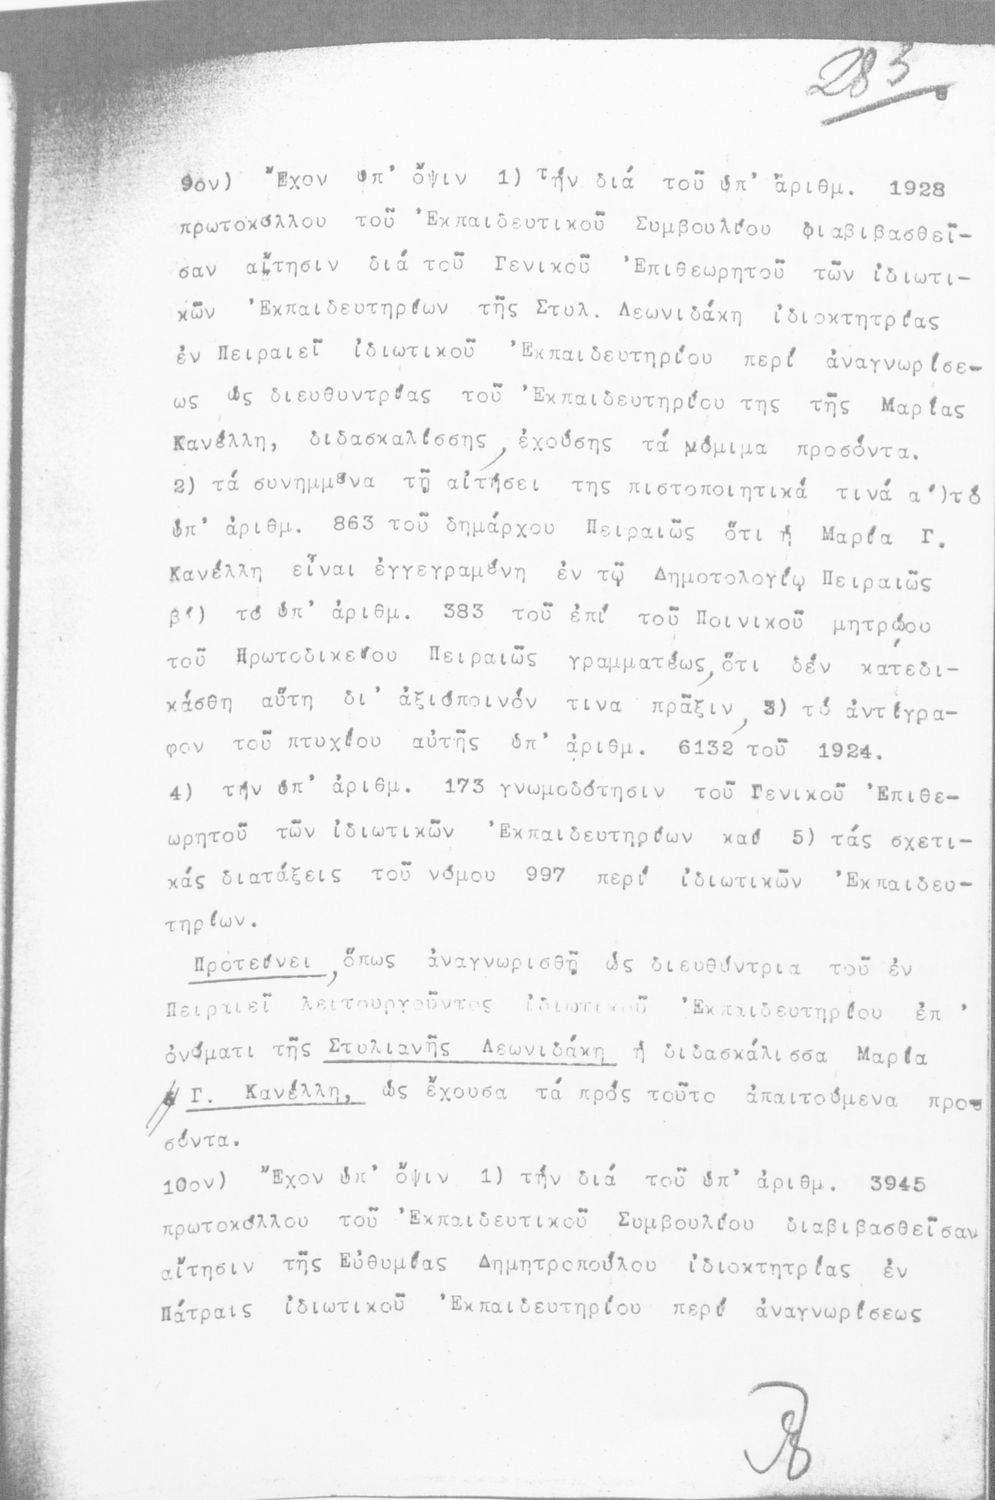 283
9ον) Ἔχον ὑπ' ὄψιν 1) τήν διά τοῦ ὑπ' ἀριθμ. 1928
πρωτοκόλλου τοῦ Ἐκπαιδευτικοῦ Συμβουλίου φιαβιβασθεῖ-
σαν αἴτησιν διά τοῦ Γενικοῦ Ἐπιθεωρητοῦ τῶν ἰδιωτι-
κῶν Ἐκπαιδευτηρίων τῆς Στυλ. Λεωνιδάκη ἰδιοκτητρίας
ἐν Πειραιεῖ ἰδιωτικοῦ Ἐκπαιδευτηρίου περί ἀναγνωρίσε-
ως ὡς διευθυντρίας τοῦ Ἐκπαιδευτηρίου της τῆς Μαρίας
Κανέλλη, διδασκαλίσσης, ἐχούσης τά νόμιμα προσόντα.
2) τά συνημμένα τῇ αἰτήσει της πιστοποιητικά τινά α') τό
ὑπ' ἀριθμ. 863 τοῦ δημάρχου Πειραιῶς ὅτι ἡ Μαρία Γ.
Κανέλλη εἶναι ἐγγεγραμένη ἐν τῷ Δημοτολογίῳ Πειραιῶς
β') τό ὑπ' ἀριθμ. 383 τοῦ ἐπί τοῦ Ποινικοῦ μητρώου
τοῦ Πρωτοδικείου Πειραιῶς γραμματέως, ὅτι δέν κατεδι-
κάσθη αὕτη δι' ἀξιόποινόν τινα πρᾶξιν, 3) τό ἀντίγρα-
φον τοῦ πτυχίου αὐτῆς ὑπ' ἀριθμ. 6132 τοῦ 1924.
4) τήν ὑπ' ἀριθμ. 173 γνωμοδότησιν τοῦ Γενικοῦ Ἐπιθε-
ωρητοῦ τῶν ἰδιωτικῶν Ἐκπαιδευτηρίων καί 5) τάς σχετι-
κάς διατάξεις τοῦ νόμου 997 περί ἰδιωτικῶν Ἐκπαιδευ-
τηρίων.
Προτείνει, ὅπως ἀναγνωρισθῇ ὡς διευθύντρια τοῦ ἐν
Πειραιεῖ λειτουργοῦντος ἰδιωτικοῦ Ἐκπαιδευτηρίου ἐπ'
ὀνόματι τῆς Στυλιανῆς Λεωνιδάκη ἡ διδασκάλισσα Μαρία
Γ. Κανέλλη, ὡς ἔχουσα τά πρός τοῦτο ἀπαιτούμενα προ-
σόντα.
10ον) Ἔχον ὑπ' ὄψιν 1) τήν διά τοῦ ὑπ' ἀριθμ. 3945
πρωτοκόλλου τοῦ Ἐκπαιδευτικοῦ Συμβουλίου διαβιβασθεῖσαν
αἴτησιν τῆς Εὐθυμίας Δημητροπούλου ἰδιοκτητρίας ἐν
Πάτραις ἰδιωτικοῦ Ἐκπαιδευτηρίου περί ἀναγνωρίσεως